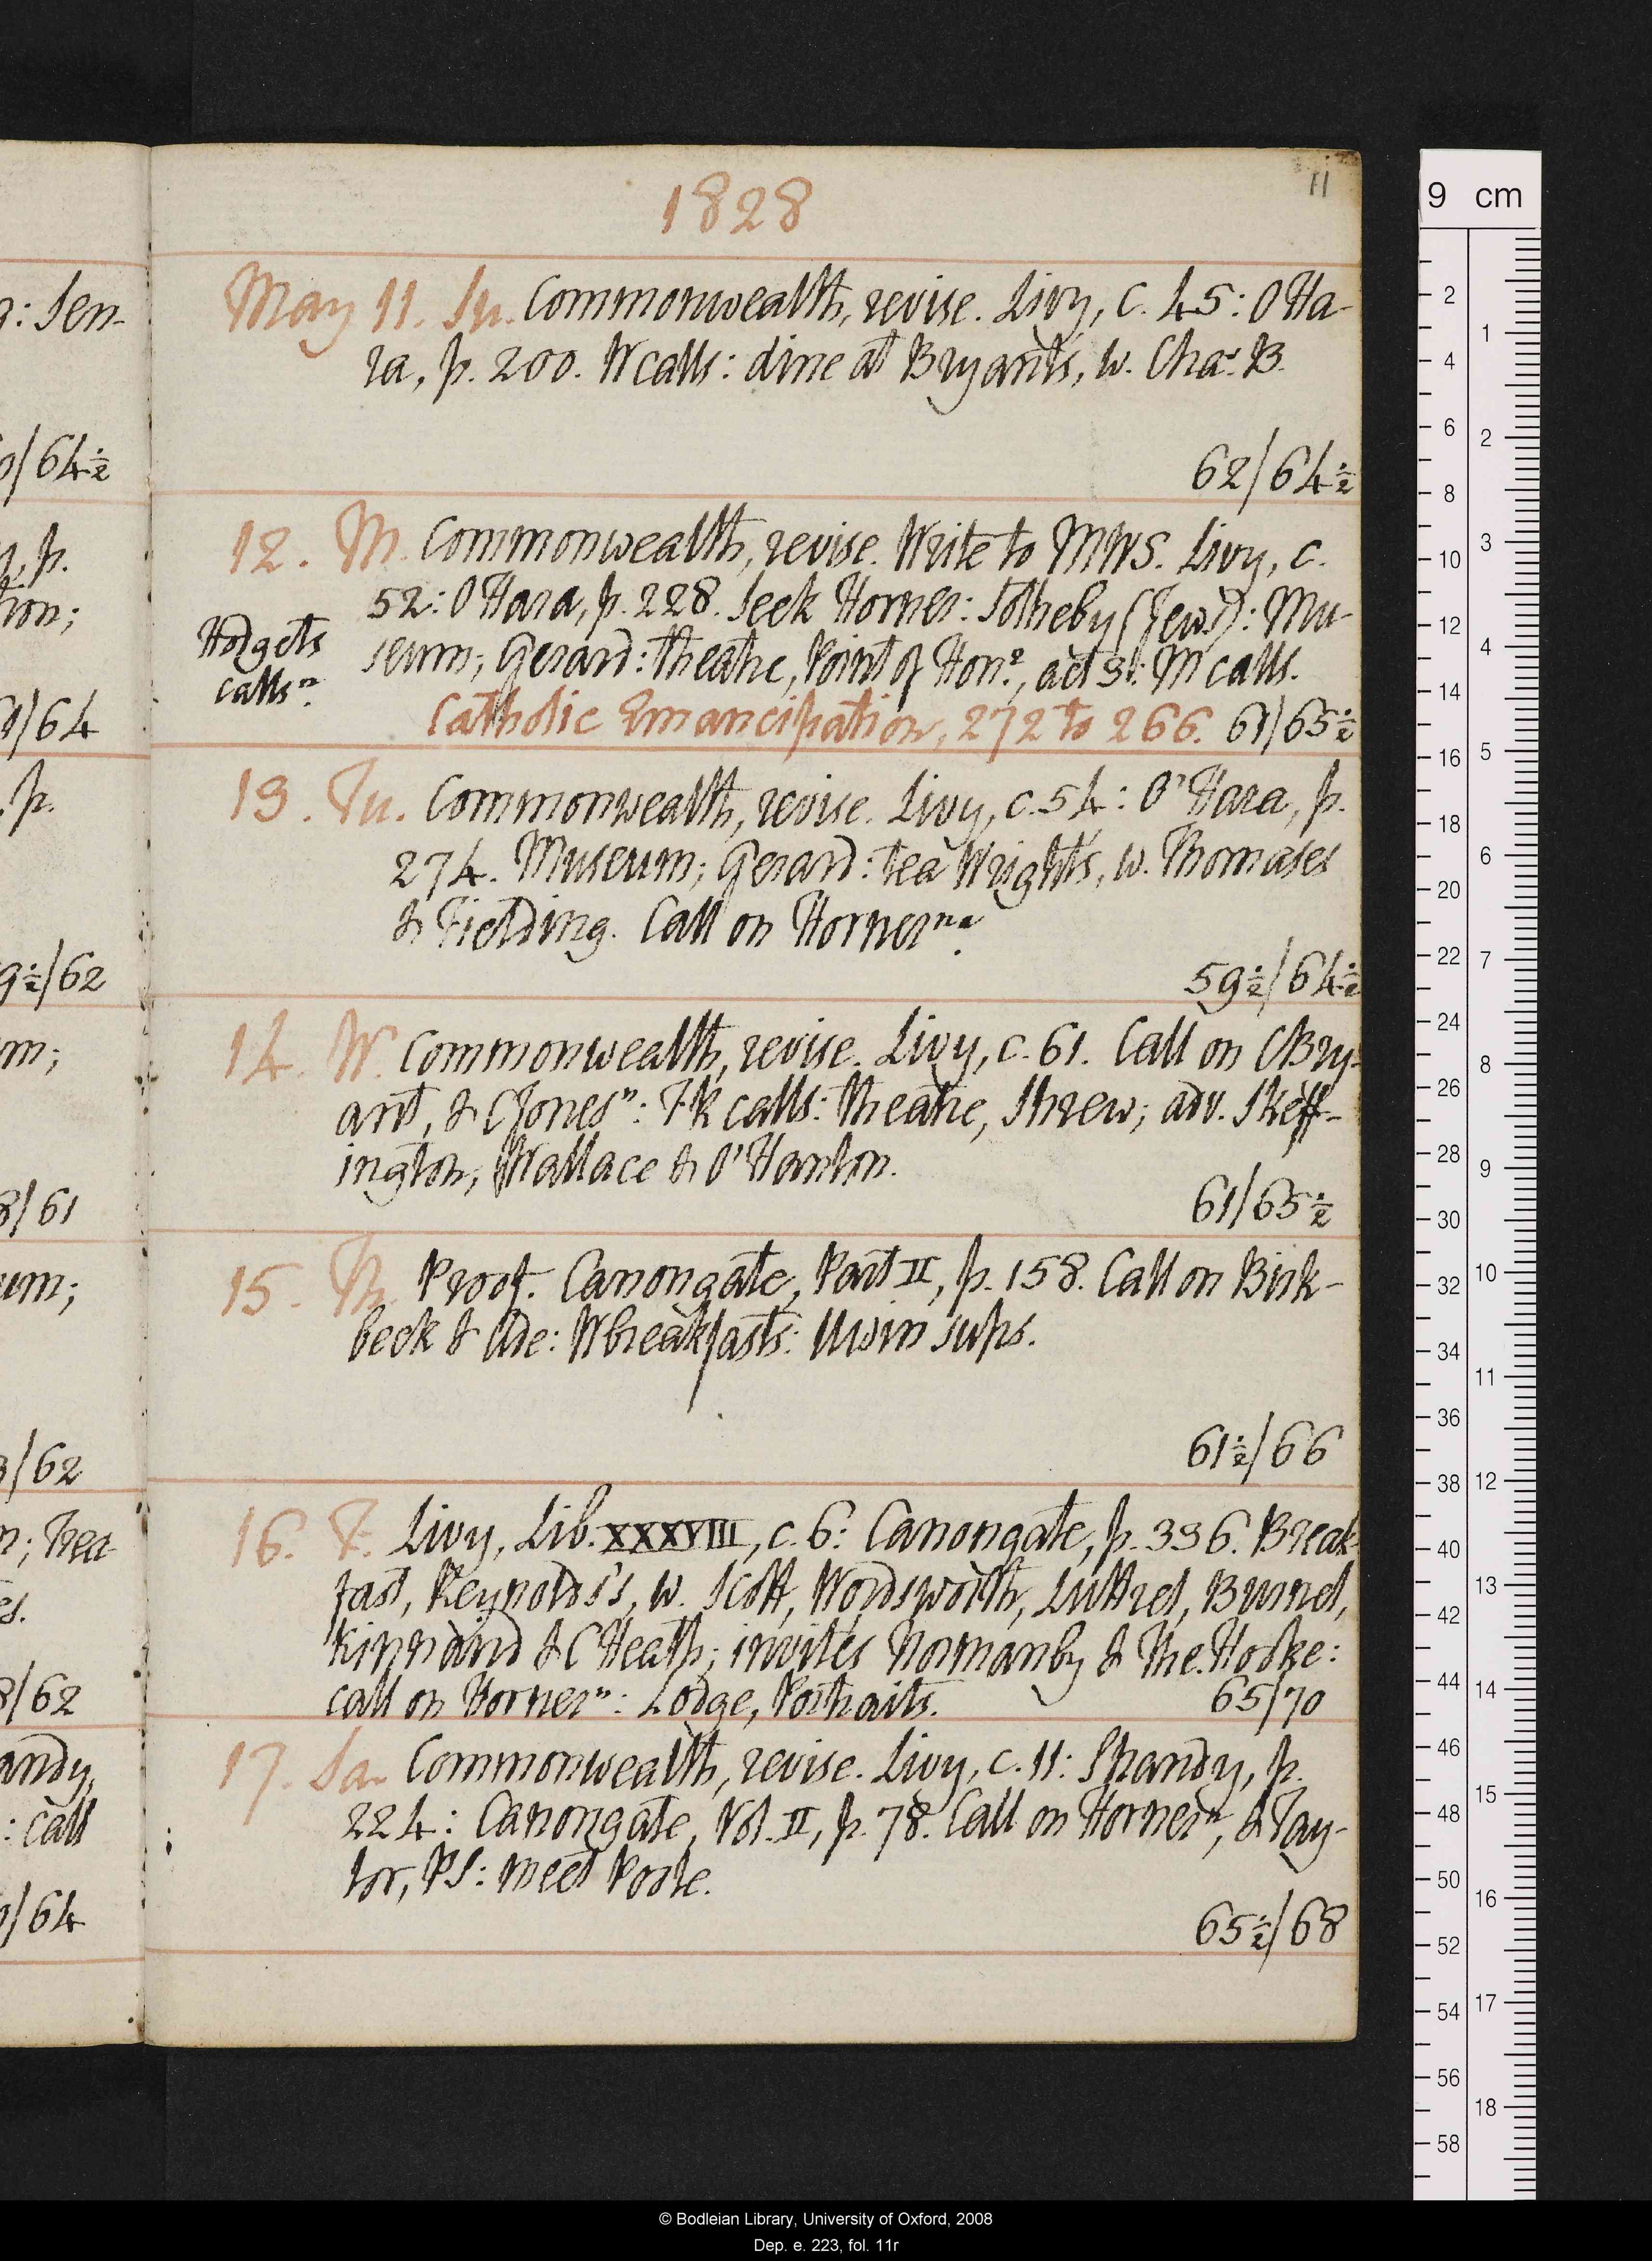 11
1828
May 11. Su. Commonwealth, revise. Livy, c. 45: O Ha-
ra, p. 200. W calls: dine at Bryant's, w. Chas. B.
62/64½
12. M. Commonwealth, revise. Write to MWS. Livy, c.
52: O Hara, p. 228. Seek Horner: Sotheby (Jew.): Mu-
Hodgets
calls n.
seum; Gerard: theatre, Point of Honr., act 3: M calls.
Catholic Emancipation, 272 to 266. 61/65½
13. Tu. Commonwealth, revise. Livy, c. 54: O'Hara, p.
274. Museum; Gerard: tea Wright's, w. Thomases
& Fielding. Call on Horner na.
59½/64½
14. W. Commonwealth, revise. Livy, c. 61. Call on CBry-
ant, & CJones n: FK calls: theatre, Shrew; adv. Skeff-
ington, Wallace & O'Hanlon.
61/65½
15. Th. Proof. Canongate, Part II, p. 158. Call on Birk-
beck & Ade: W breakfasts: Uwin sups.
61½/66
16. F. Livy, Lib. XXXVIII, c. 6: Canongate, p. 336. Break-
fast, Reynolds's, w. Scott, Wordsworth, Luttrel, Burnel,
Kinnaird & C Heath; invites Normanby & The. Hooke:
call on Horner n: Lodge, Portraits. 65/70
17. Sa. Commonwealth, revise. Livy, c. 11: Shandy, p.
224: Canongate, Vol. II, p. 78. Call on Horner n, & Tay-
lor, PS: meet Poole.
65½/68
: Sen-
/64½
, p.
/64
. p.
/62
m;
/61
um;
/62
; Trea-
/62
andy,
: call
/64
9 cm
2
1
4
6
2
8
10
3
12
4
14
16
5
18
6
20
22
7
24
8
26
28
9
30
32
10
34
11
36
38
12
40
13
42
44
14
46
15
48
50
16
52
54
17
56
18
58
© Bodleian Library, University of Oxford, 2008
Dep. e. 223, fol. 11r